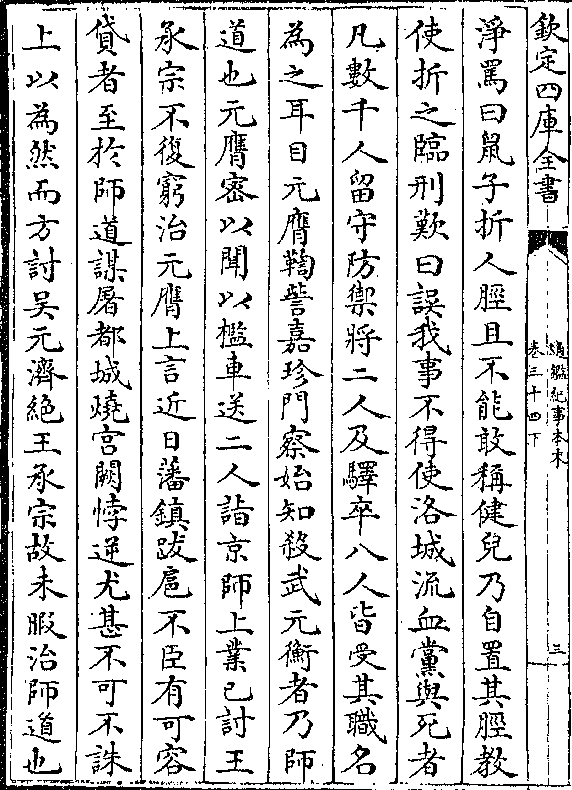 欽定四庫全書
通鑑紀事本末
卷三十四下
三
淨罵曰鼠子折人脛且不能敢稱健兒乃自置其脛教
使折之臨刑歎曰誤我事不得使洛城流血黨與死者
凡數千人留守防禦將二人及驛卒八人皆受其職名
為之耳目元膺鞫訾嘉珍門察始知殺武元衡者乃師
道也元膺密以聞以檻車送二人詣京師上業已討王
承宗不復窮治元膺上言近日藩鎮跋扈不臣有可容
貸者至於師道謀屠都城燒宮闕悖逆尤甚不可不誅
上以為然而方討吳元濟絶王承宗故未暇治師道也